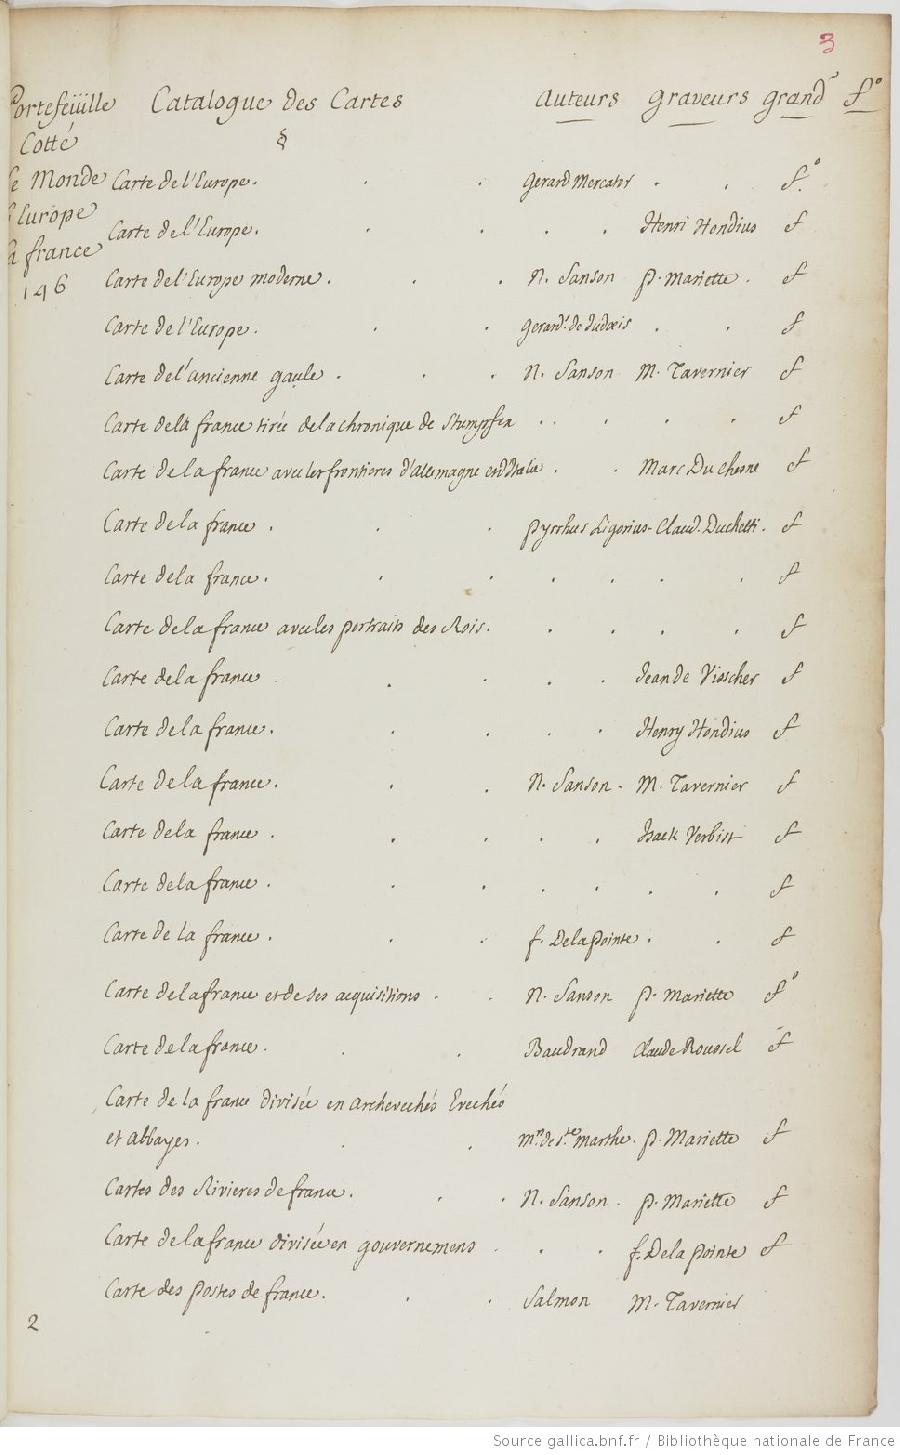 3
Portefeüille Catalogue des Cartes auteurs graveurs grandr fo
Cotté §
le Monde Carte de l'Europe. Gerard Mercator fo.
l'Europe Carte de l'Europe. Henri Hondius f
la france
146 Carte de l'Europe moderne. N. Sanson p. Mariette. f
Carte de l'Europe. Gerard. de f
Carte de l'ancienne gaule. N. Sanson M. Tavernier f
Carte dela france tirée de la chronique de Stumpfen f
Carte de la france avec les frontieres d'alemagne et d'Italie Marc Duchesne f
Carte de la france. pyrrhus Ligorius. Claud. Duchetti. f
Carte de la france. f
Carte de la france avec les portraits des Rois. f
Carte de la france Jean de Visscher f
Carte de la france. Henry Hondius f
Carte de la france. N. Sanson. M. Tavernier f
Carte de la france. Isack Verbist f
Carte de la france. f
Carte de la france. f. De la pointe. f
Carte de la france et de ses acquisitions. N. Sanson p. Mariette fo
Carte de la france. Baudrand Claude Roussel f
Carte de la france divisée en archevechés Evechés
et abbayes. mrs de Ste marthe. p. Mariette f
Cartes des Rivieres de france. N. Sanson. p. Mariette f
Carte de la france divisée en gouvernemens f. De la pointe f
Carte des postes de france. Salmon M. Tavernier
2
Source gallica.bnf.fr / Bibliothèque nationale de France